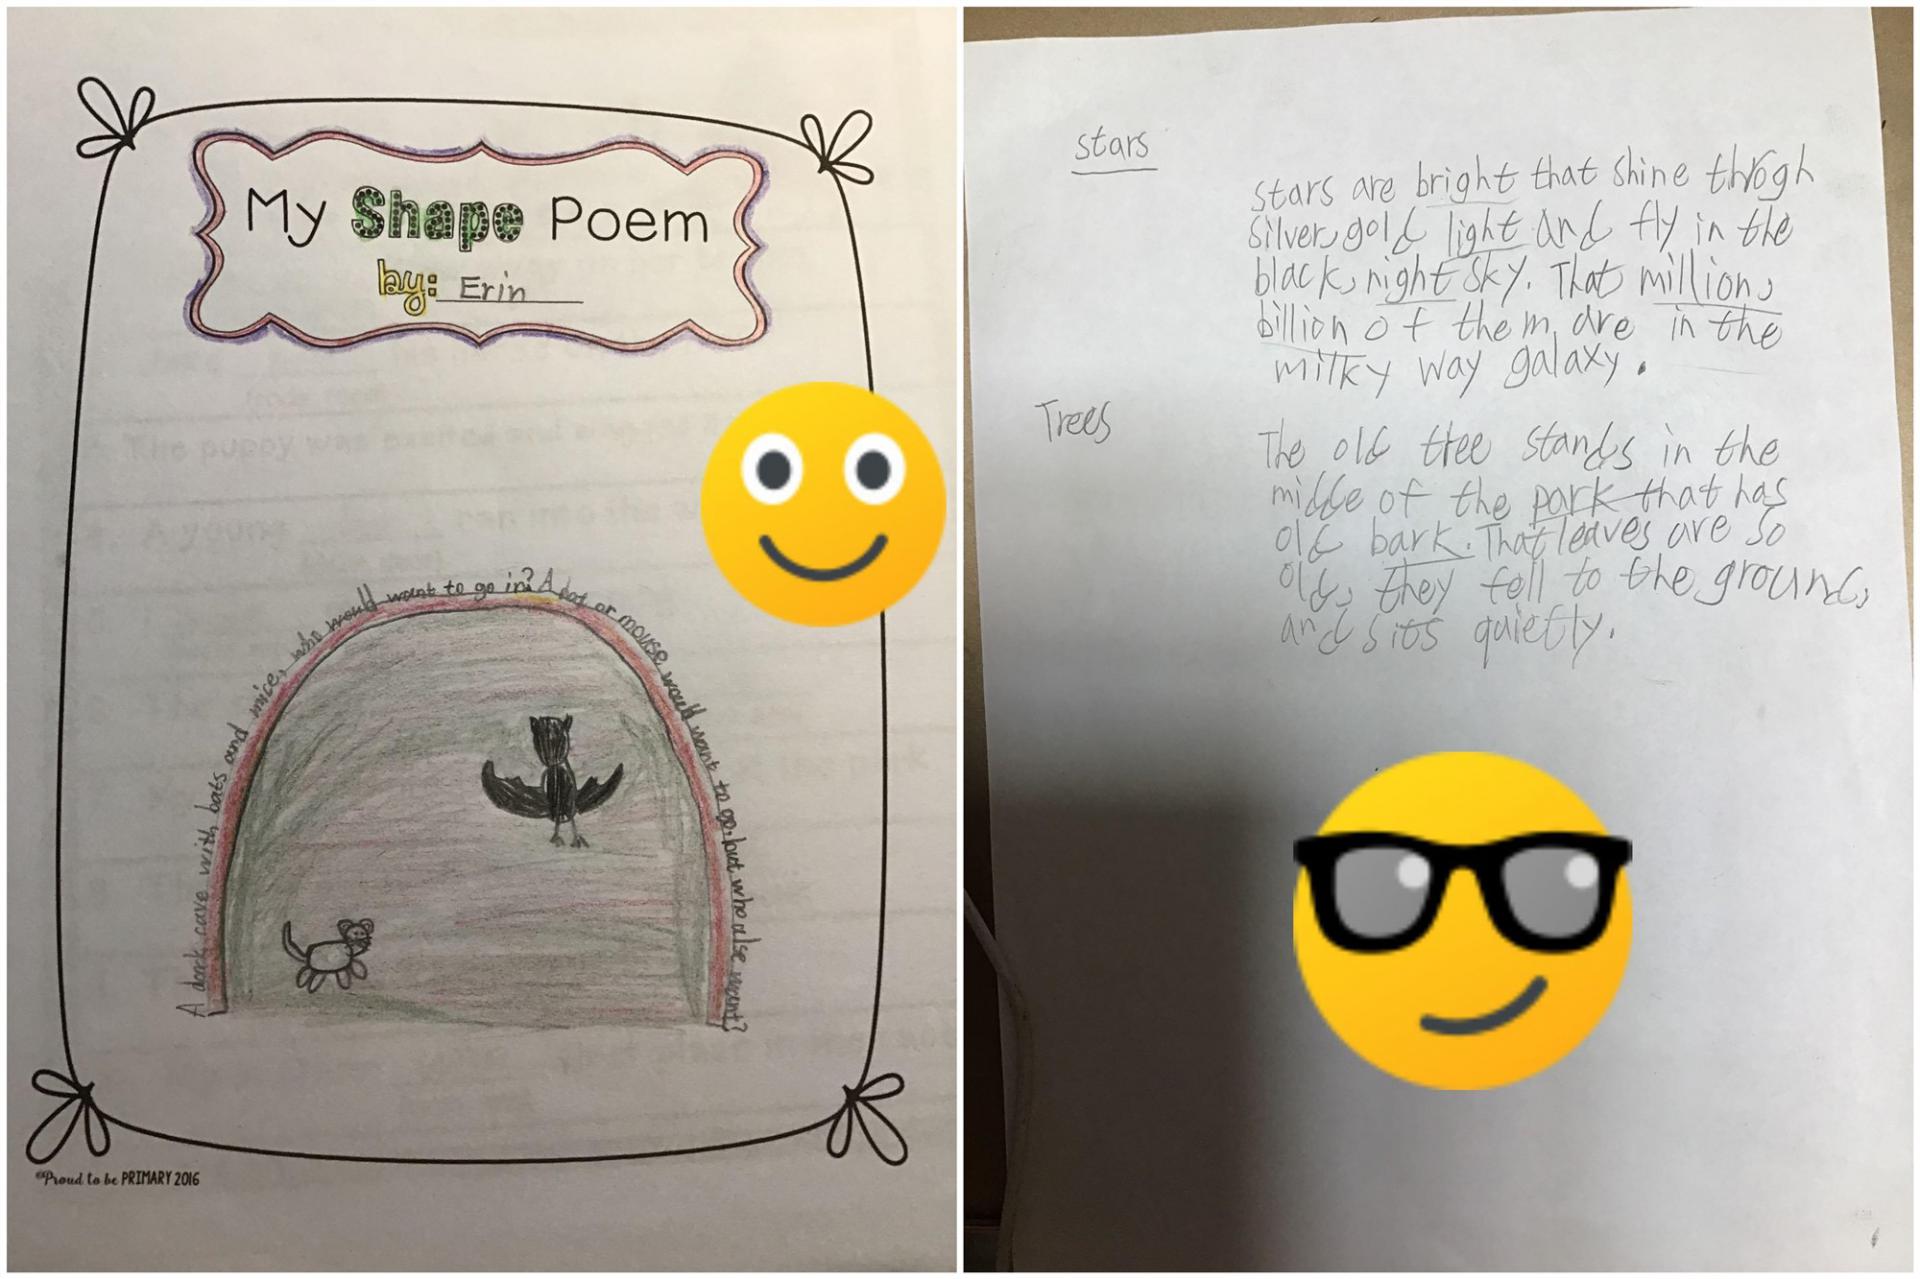 My Shape Poem
by: Erin
A dark cave with bats and mice, who would want to go in? A bat or mouse would want to go, but who else want?
©Proud to be PRIMARY 2016
stars
stars are bright that shine throgh
silver, gold light and fly in the
black, night sky. That million,
billion of them, are in the
milky way galaxy.
Trees
The old tree stands in the
midde of the park that has
old bark. That leaves are so
old, they fell to the ground,
and sits quietly.